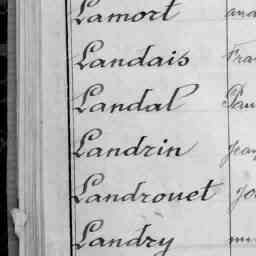 Lamort
Landais
Landal
Landrin
Landrouet
Landry